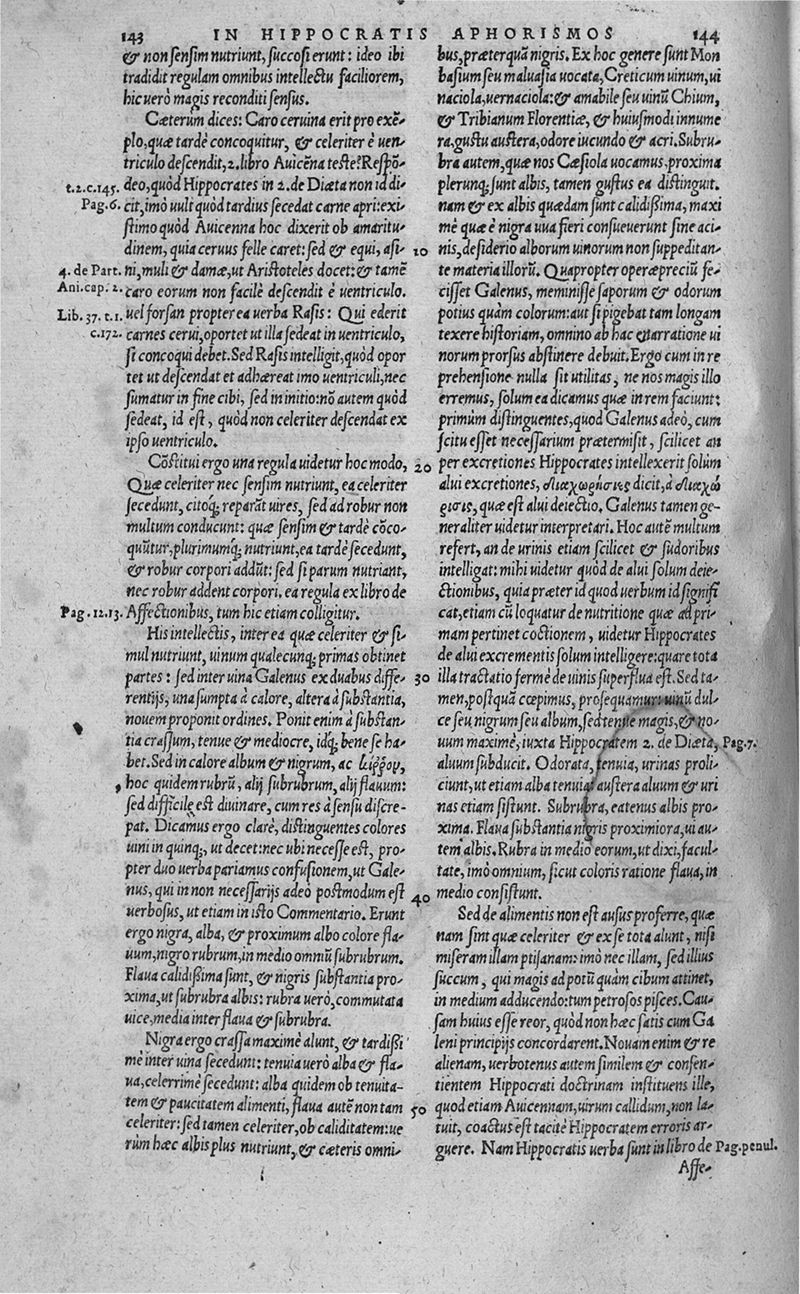 143 IN HIPPOCRATIS APHORISMOS 144
& non sensim nutriunt, succosi erunt: ideo ibi
tradidit regulam omnibus intellectu faciliorem,
hic uerò magis reconditi sensus.
Cæterum dices: Caro ceruina erit pro exẽ-
plo, quæ tardè concoquitur, & celeriter è uen-
triculo descendit, 2. libro Auicẽna teste? Respõ-
t.2.c.145. deo, quòd Hippocrates in 2. de Diæta non id di-
Pag.6. cit, imò uult quòd tardius secedat carne apri: exi-
stimo quòd Auicenna hoc dixerit ob amaritu-
dinem, quia ceruus felle caret: sed & equi, asi- 10
4. de Part. ni, muli & damæ, ut Aristoteles docet: & tamẽ
Ani.cap.2. caro eorum non facilè descendit è uentriculo.
Lib.37.t.1. uel forsan propter ea uerba Rasis: Qui ederit
c.172. carnes cerui, oportet ut illa sedeat in uentriculo,
si concoqui debet. Sed Rasis intelligit, quòd opor
tet ut descendat et adhæreat imo uentriculi, nec
sumatur in fine cibi, sed in initio: nõ autem quòd
sedeat, id est, quòd non celeriter descendat ex
ipso uentriculo.
Cõstitui ergo una regula uidetur hoc modo, 20
Quæ celeriter nec sensim nutriunt, ea celeriter
secedunt, citoq; reparãt uires, sed ad robur non
multum conducunt: quæ sensim & tardè cõco-
quũtur, plurimumq; nutriunt, ea tardè secedunt,
& robur corpori addũt: sed si parum nutriant,
nec robur addent corpori, ea regula ex libro de
Pag.12.13. Affectionibus, tum hic etiam colligitur.
His intellectis, inter ea quæ celeriter & si-
mul nutriunt, uinum qualecunq; primas obtinet
partes: sed inter uina Galenus ex duabus diffe- 30
rentijs, una sumpta à calore, altera à substantia,
nouem proponit ordines. Ponit enim à substan-
tia crassum, tenue & mediocre, idq; bene se ha-
bet. Sed in calore album & nigrum, ac κιῤῥὸν,
hoc quidem rubrũ, alij subrubrum, alij flauum:
sed difficile est diuinare, cum res à sensu discre-
pat. Dicamus ergo clarè, distinguentes colores
uini in quinq;, ut decet: nec ubi necesse est, pro-
pter duo uerba pariamus confusionem, ut Gale-
nus, qui in non necessarijs adeò postmodum est 40
uerbosus, ut etiam in isto Commentario. Erunt
ergo nigra, alba, & proximum albo colore fla-
uum, nigro rubrum, in medio omniũ subrubrum.
Flaua calidißima sunt, & nigris substantia pro-
xima, ut subrubra albis: rubra uerò, commutata
uice, media inter flaua & subrubra.
Nigra ergo crassa maximè alunt, & tardißi
mè inter uina secedunt: tenuia uerò alba & fla-
ua, celerrimè secedunt: alba quidem ob tenuita-
tem & paucitatem alimenti, flaua autẽ non tam 50
celeriter: sed tamen celeriter, ob caliditatem: ue
rùm hæc albis plus nutriunt, & cæteris omni-
bus, præterquã nigris. Ex hoc genere sunt Mon
basium seu maluasia uocata, Creticum uinum, ui
naciola, uernaciola: & amabile seu uinũ Chium,
& Tribianum Florentiæ, & huiusmodi innume
ra, gustu austera, odore iucundo & acri. Subru-
bra autem, quæ nos Cæsiola uocamus, proxima
plerunq; sunt albis, tamen gustus ea distinguit.
nam & ex albis quædam sunt calidißima, maxi
mè quæ è nigra uua fieri consueuerunt sine aci-
nis, desiderio alborum uinorum non suppeditan-
te materia illorũ. Quapropter operæpreciũ fe-
cisset Galenus, meminisse saporum & odorum
potius quàm colorum: aut si pigebat tam longam
texere historiam, omnino ab hac enarratione ui
norum prorsus abstinere debuit. Ergo cum in re
prehensione nulla sit utilitas, ne nos magis illo
erremus, solum ea dicamus quæ in rem faciunt:
primùm distinguentes, quod Galenus adeò, cum
scitu esset necessarium prætermisit, scilicet an
per excretiones Hippocrates intellexerit solùm
alui excretiones, διαχωρήσιας dicit, à διαχώ
ρισις, quæ est alui deiectio. Galenus tamen ge-
neraliter uidetur interpretari. Hoc autẽ multum
refert, an de urinis etiam scilicet & sudoribus
intelligat: mihi uidetur quòd de alui solum deie-
ctionibus, quia præter id quod uerbum id signifi
cat, etiam cũ loquatur de nutritione quæ ad pri-
mam pertinet coctionem, uidetur Hippocrates
de alui excrementis solum intelligere: quare tota
illa tractatio fermè de uinis superflua est. Sed ta-
men, postquã cœpimus, prosequamur: uinũ dul-
ce seu nigrum seu album, sed tenue magis, & no-
uum maximè, iuxta Hippocratem 2. de Diæta, Pag.7.
aluum subducit. Odorata, tenuia, urinas proli-
ciunt, ut etiam alba tenuia: austera aluum & uri
nas etiam sistunt. Subrubra, eatenus albis pro-
xima. Flaua substantia nigris proximiora, ui au-
tem albis. Rubra in medio eorum, ut dixi, facul-
tate, imò omnium, sicut coloris ratione flaua, in
medio consistunt.
Sed de alimentis non est ausus proferre, quæ
nam sint quæ celeriter & ex se tota alunt, nisi
miseram illam ptisanam: imò nec illam, sed illius
succum, qui magis ad potũ quàm cibum attinet,
in medium adducendo: tum petrosos pisces. Cau-
sam huius esse reor, quòd non hæc satis cum Ga
leni principijs concordarent. Nouam enim & re
alienam, uerbotenus autem similem & consen-
tientem Hippocrati doctrinam instituens ille,
quod etiam Auicennam, uirum callidum, non la-
tuit, coactus est tacitè Hippocratem erroris ar-
guere. Nam Hippocratis uerba sunt in libro de Pag.penul.
Affe-